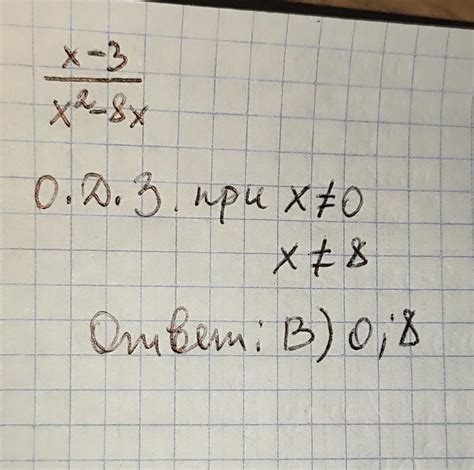 x-3
x²-8x
О.Д.З. при x≠0
x≠8
Ответ: В) 0; 8